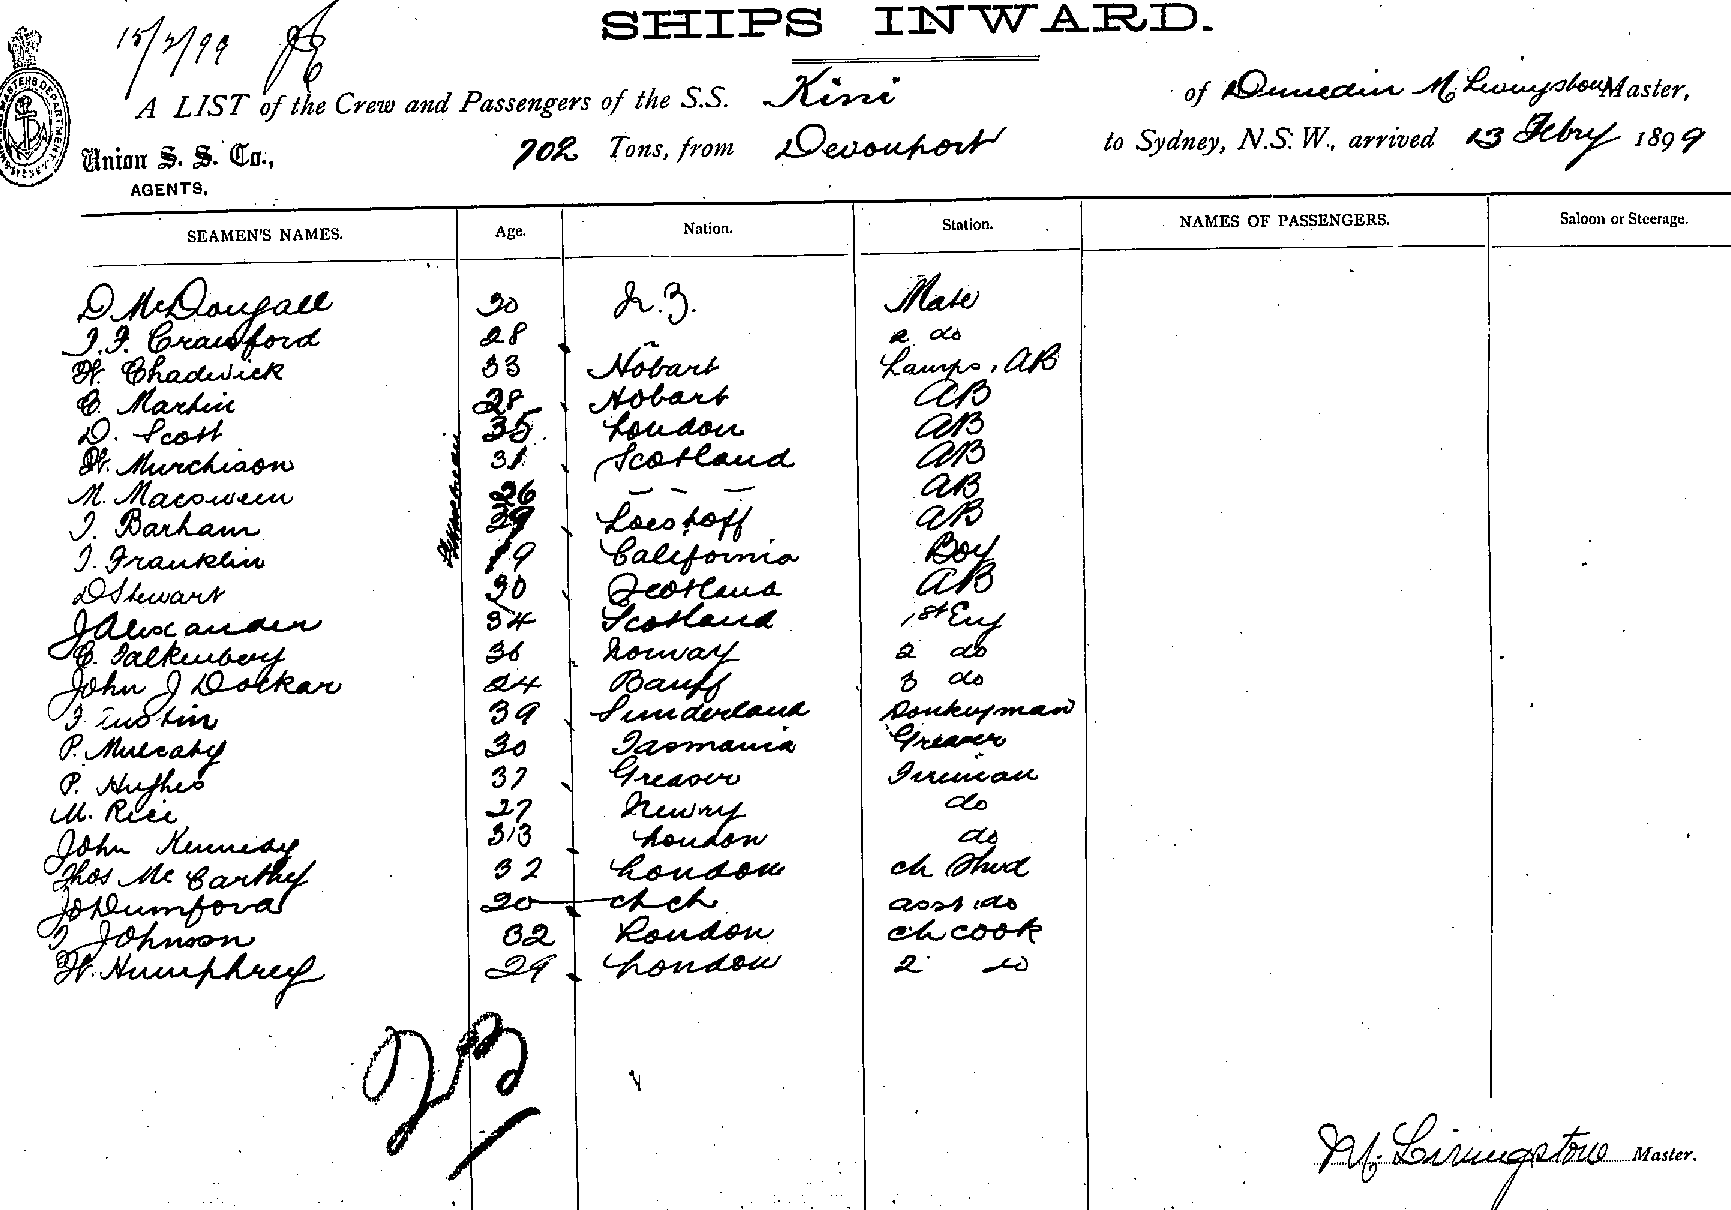 15/2/99
SHIPS INWARD.
A LIST of the Crew and Passengers of the S.S. Kini of Dunedin M Livingstone Master,
Union S. S. Co., 702 Tons, from Devonport to Sydney, N.S.W., arrived 13 Febry 1899
AGENTS.
SEAMEN'S NAMES. Age. Nation. Station. NAMES OF PASSENGERS. Saloon or Steerage.
D McDougall 30 N.Z. Mate
J.F. Crawford 28 " 2 do
H. Chadwick 33 Hobart Lamps, AB
C. Martin 28 Hobart AB
D. Scott 35 London AB
H. Murchison 31 Scotland AB
M. Macsween 26 — — — AB
J. Barham 29 AB
J. Franklin 19 California Boy
D Stewart 30 Scotland AB
J Alexander 34 Scotland 1st Eng
C. Falkenberg 36 Norway 2 do
John J Dockar 24 Banff 3 do
39 Sunderland Donkeyman
P. Mulcahy 30 Tasmania Greaser
P. Hughes 37 Greaser Fireman
M. Rice 27 Newry do
John Kennedy 33 London do
Thos McCarthy 32 London ch Stwd
20 ch ch asst do
J Johnson 32 London ch cook
H. Humphrey 29 London 2 do
M. Livingstone Master.